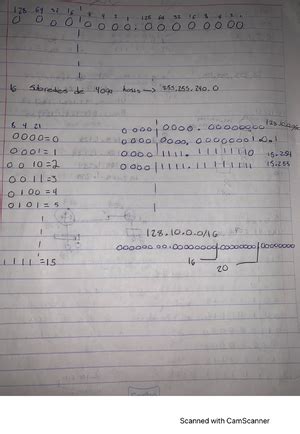 128 64 32 16 8 4 2 1 128 64 32 16 8 4 2 1
0 0 0 0 0 0 0 0. 0 0 0 0 0 0 0 0
16 subredes de 4094 hosts → 255.255.240.0
8 4 2 1
0000=0
0001=1
0010=2
0011=3
0100=4
0101=5
1111=15
0000 0000. 00000000
0000 0000. 00000001 .0.1
0000 1111. 11111110 15.254
0000 1111. 11111111 15.255
128.10.0.0/16
16
20
Scanned with CamScanner